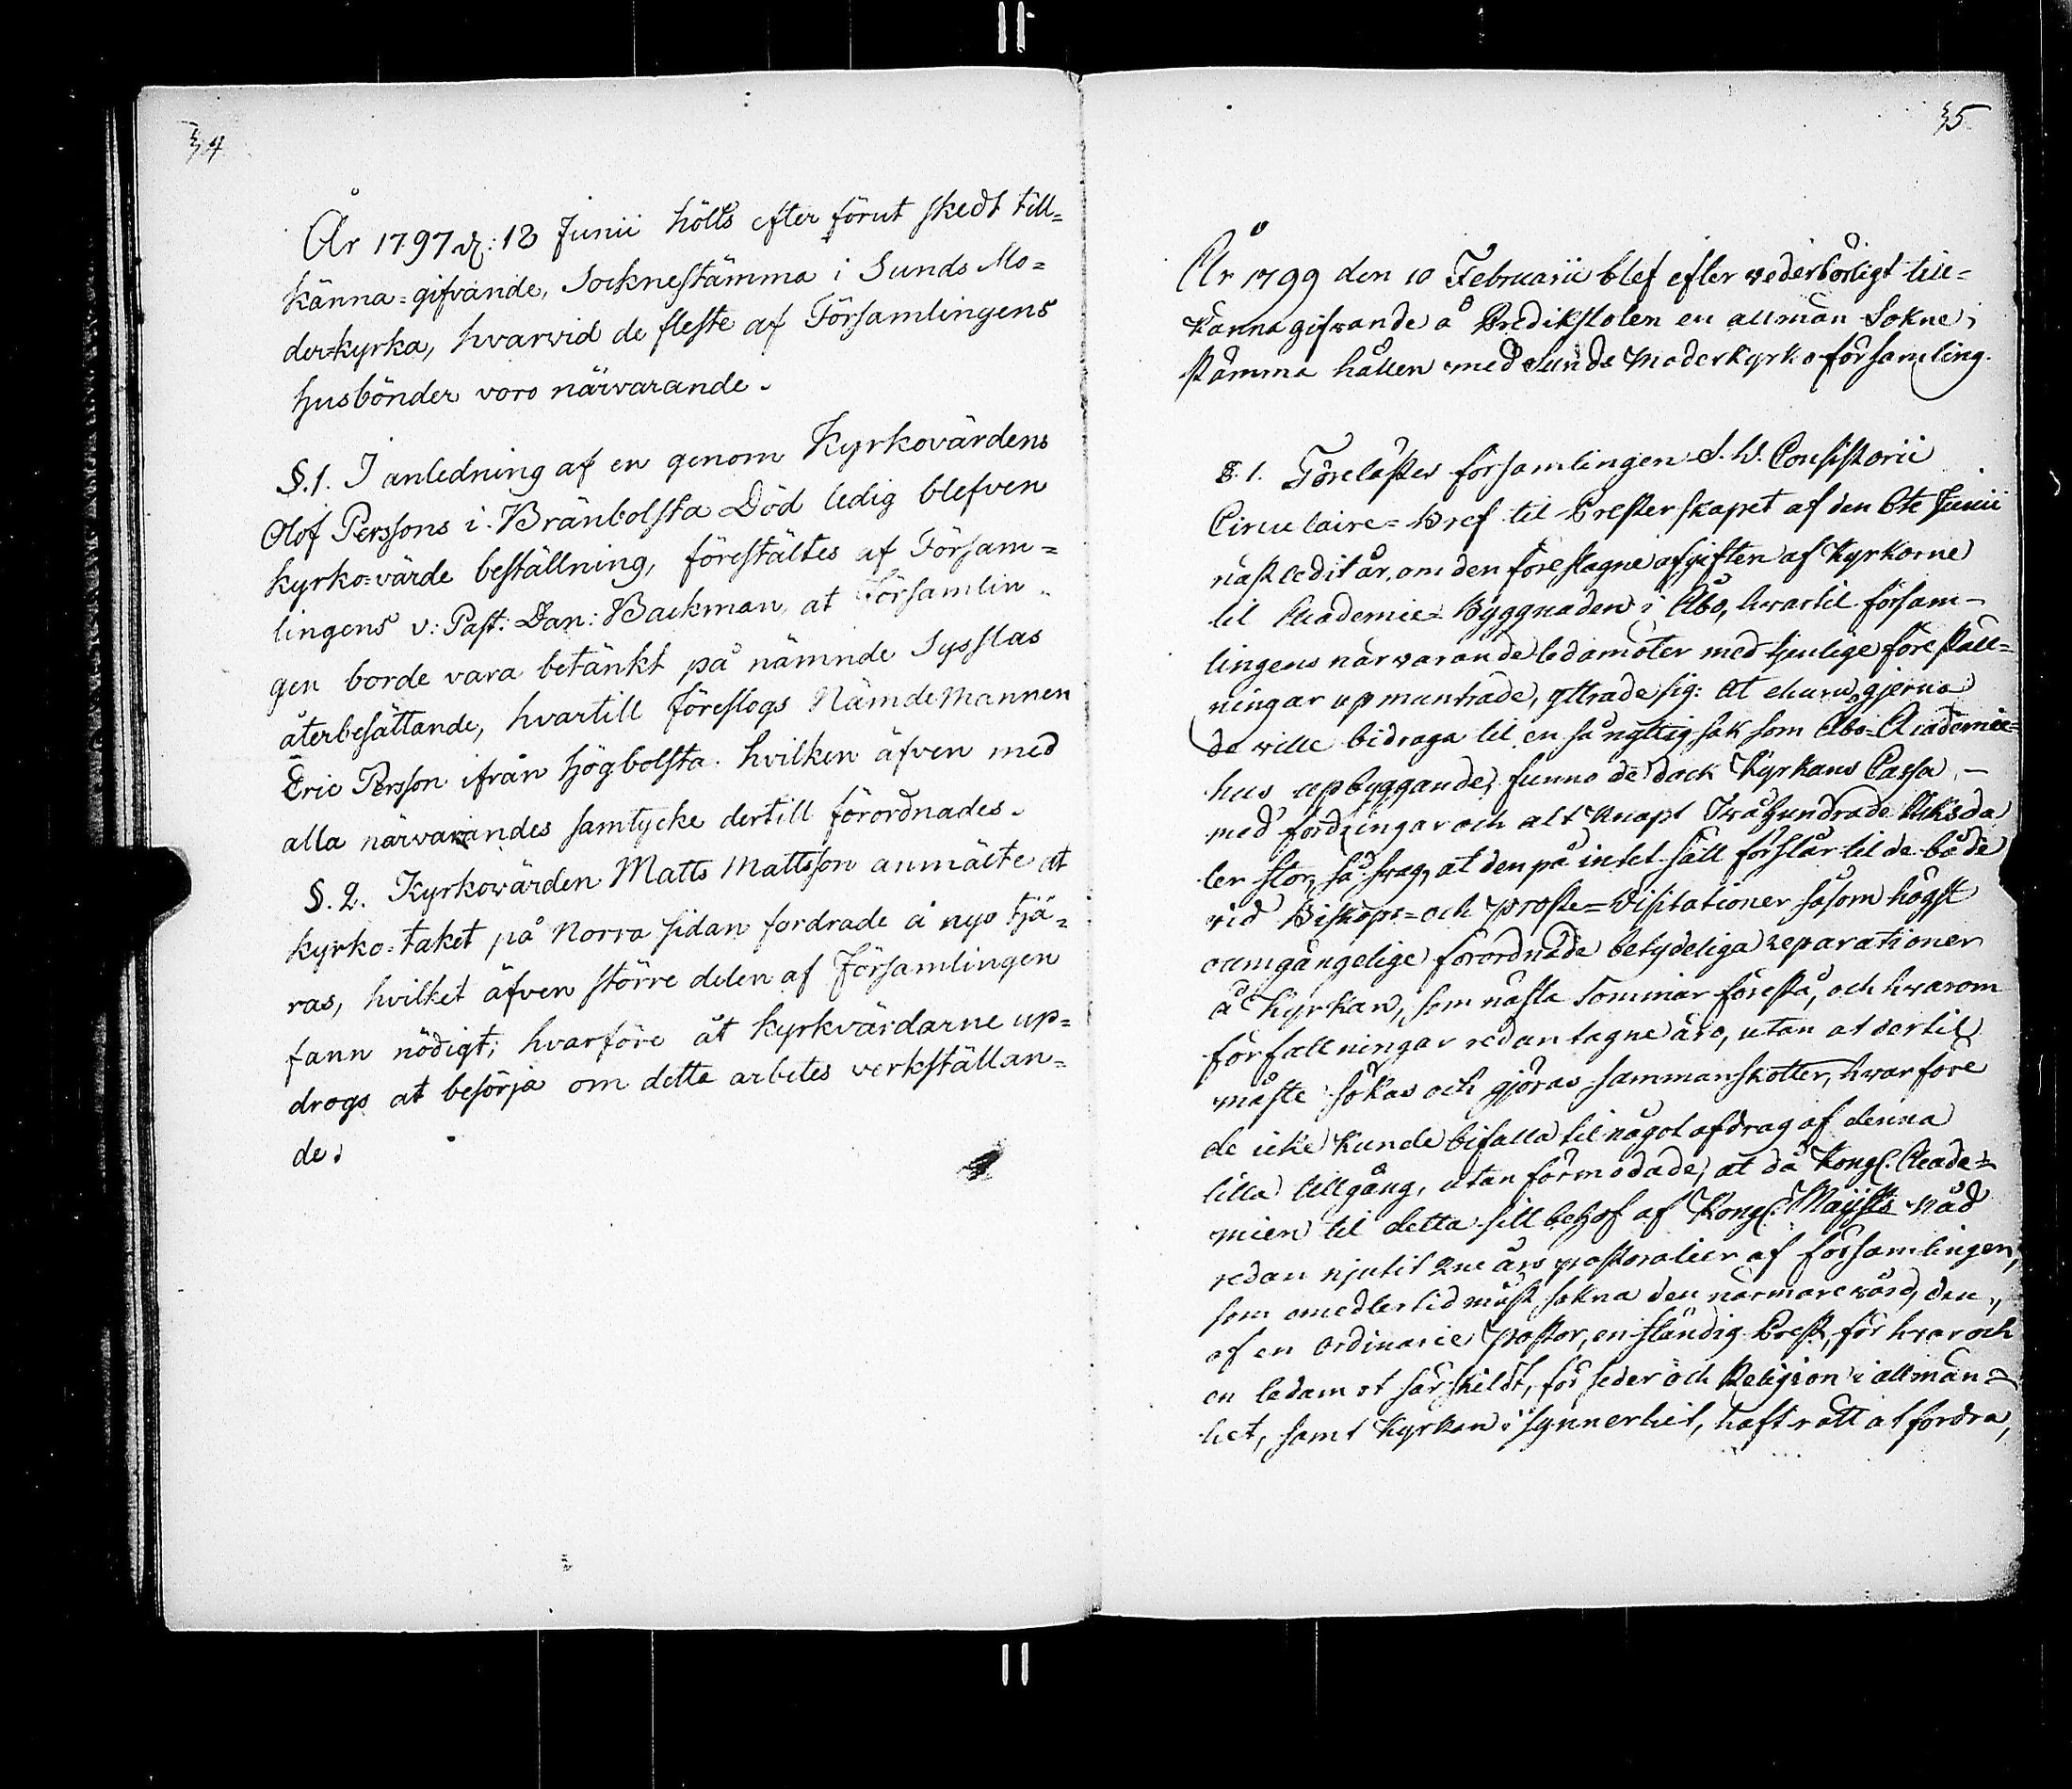 34
År 1797 d: 18 Junii hölts efter förut skedt till=
känna=gifvande, Socknestämma i Sunds Mo=
der=kyrka, hvarvid de fleste af Församlingens
husbönder voro närvarande.
§.1. I anledning af en genom Kyrkovärdens
Olof Perssons i Bränbolsta Död ledig blefven
kyrko=värde beställning, förestältes af Försam=
lingens v: Past: Dan: Backman, at Församlin=
gen borde vara betänkt på nämnde Sysslas
återbesättande, hvartill föreslogs Nämdemannen
Eric Persson ifrån Högbolsta. hvilken äfven med
alla närvarandes samtycke dertill förordnades.
§.2. Kyrkovärden Matts Mattsson anmälte at
kyrko=taket på Norra sidan fordrade å nyo tjä=
ras, hvilket äfven större delen af Församlingen
fann nödigt; hvarföre åt kyrkvärdarne up=
drogs at besörja om detta arbetes verkställan=
de.
35
År 1799 den 10 Februarii blef efter vederbörligt till=
känna gifvande å Predikstolen en allmän Sokne=
stämma hållen med Sunds Moderkyrkoförsamling.
§.1. Förelästes församlingen S. W. Consistorii
Circulaire=Bref til Presterskapet af den 6te Junii
näst ledit år, om den föreslagne afgiften af Kyrkorne
til Academie=Byggnaden i Åbo, hvartil försam=
lingens närvarande ledamöter med tjenlige föreställ=
ningar upmuntrade, yttrade sig: At ehuru gjerna
de ville bidraga til en så nyttig sak som Åbo=Academie=
hus upbyggande, funno de dock Kyrkans Cassa,
med fordringar och alt knapt Tvåhundrade Riksda
ler stor, så svag, at den på intet sätt förslår til de både
vid Biskops=och Proste=Visitationer såsom högst
oumgängelige förordnade betydeliga reparationer
å Kyrkan, som nästa Sommar förestå, och hvarom
förfallningar redan tagne äro, utan at dertil
måste sökas och gjöras sammanskotter, hvarföre
de icke kunde bifalla til något afdrag af denna
lilla tillgång, utan förmodade, at då Kongl. Acade=
mien til detta sitt behof af Kongl. Maijsts Nåd
redan njutit 2ne års pastoralier af församlingen,
som emedlertid måst sakna den närmare vård, den,
af en ordinarie Pastor, en ständig Prest, för hvar och
en ledamot särskildt, för seder och Religion i allmän=
het, samt Kyrkan i synnerhet, haft rätt at fordra,